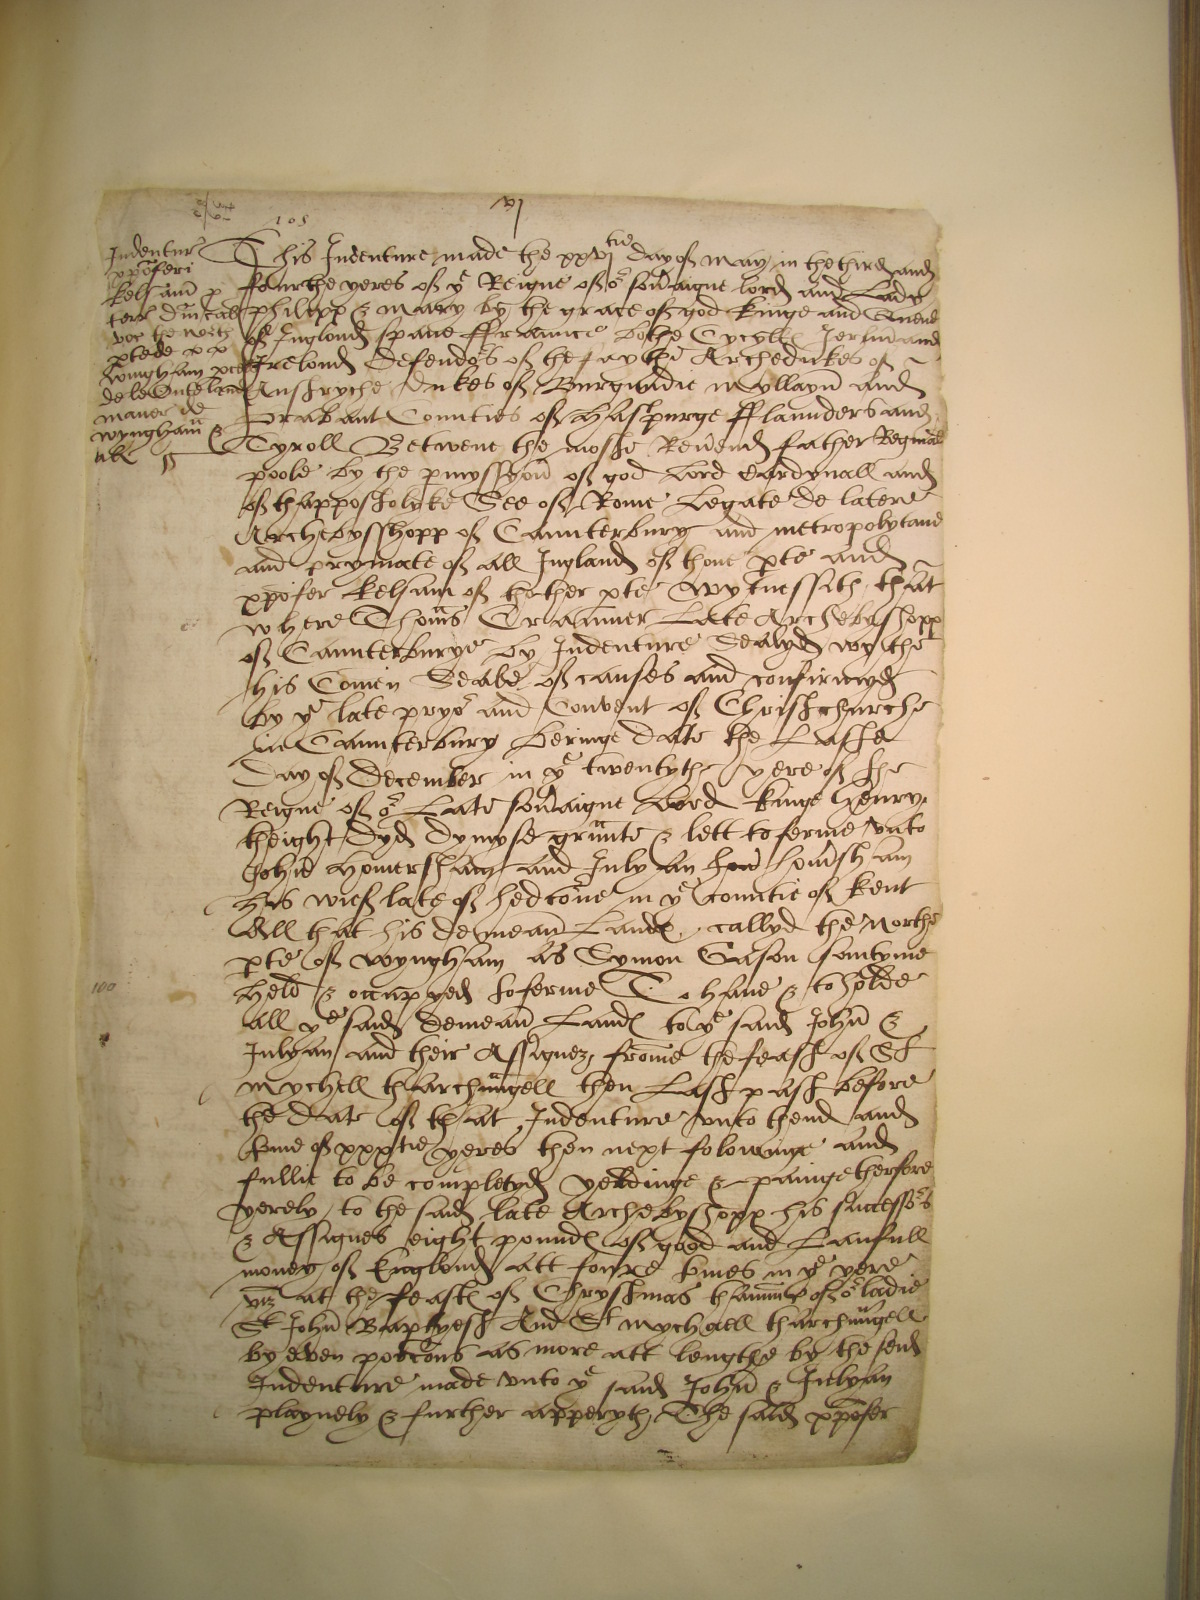 vj
105
Indentur
xpoferi
kelsam p
terr dnical
voc the north
ptede
wingham
maner de
wyngham &
This Indenture made the xxvjtie day of may in the third and
fourthe yeres of ye Reigne of or sovaigne lord and Lady
philipp & mary by the grace of god kinge and Quene
of Inglond Spane ffraunce bothe Cycylles Jerlm and
Irelond defendors of the faythe Archedukes of
Austryche dukes of Burgundie myllayn and
Brabant Counties of haspurge fflaunders and
Tyroll Betwene the moste Reuend father Reginald
poole by the pmyssyon of god Lord Cardynall and
of thappostolyke See of Rome Legate de latere
Archebysshopp of Caunterbury and metropolytane
and prymate of all Ingland of thone pte and
xpofer kelsam of thother pte Wytnessith that
where Thoms Cranmer Late Archebyshopp
of Caunterburye by Indenture Sealyd wythe
his Comen Seale of causes and confirmyd
by ye late pryor and Convent of Christchurche
in Caunterbury beringe date the Laste
Day of December in ye twentythe yere of the
Reigne of or Late sovaigne Lord kinge henry
theight dyd dymyse graunte & lett to ferme unto
John homersham and Julyan homsham
his wief late of hedcorne in ye countie of kent
All that his demean Landes callyd the Northe
pte of wyngham as Symon Gason somtyme
held & occupyed to ferme To have & to holde
all ye said demean Landes to ye said John &
Julyan and their Assignez frome the feast of St
mychell tharchaungell then Last past before
the date of that Indenture unto thend and
tme of xxxtie yeres then next folowinge and
fullie to be completyd yeldinge & painge therfore
yerely to the said late Archebyshopp his successors
& Assignes eight poundes of good and Laufull
money of Englond att foure tmes in ye yere
viz at the feastes of Chrystmas thannunc of or ladie
St John Baptyest And St mychaell tharchaungell
by even porcons as more att lengthe by the seid
Indenture made unto ye said John & Julyan
playnely & further apperyth, The said xpofer
100